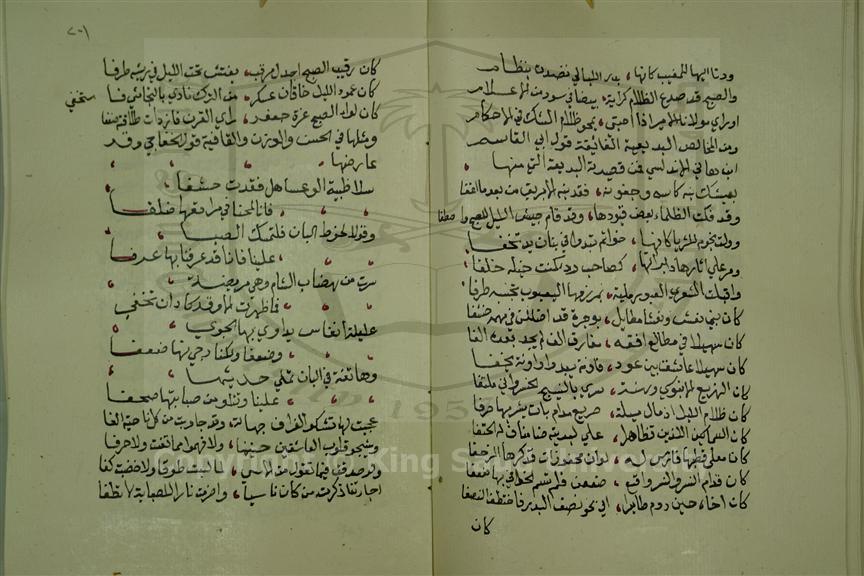 ودنا ايها للمغيب كانها، بدر الليالي نصدن بنظامر
والصبح قد صدع الظلام كرايه، بيضا في سود من الاعلامر
اوراي مولانا الامير اذا احتبي، يجو ظلام الشك في الاحكام
ومن المخالص البديعية الفايقة قول ابي القاسم
ابن هاني الاندلسي من قصيدته البديعة التي منها
بعيشك نبه كاسه وجفونه، فقد نبه الابريق من بعد ما اغفا
وقد فكت الظلماء بعض قيودها، وقد قام جيش الليل للصبح واصطفا
وولت نجوم للثريا كانها، خواتم تبدو في بنان يد تخفا
ومر علي اثارها دبرانها، كصاحب ردء كمنت خيله خلفا
واقبلت الشعري العبور ملية، بمرزمها اليعبوب تجنبه طرفا
كان بني نعش ونعشا مطافل، بوجرة قد اضللن في مهمه خشفا
كان سهيلا في مطالع افقه، مفارق الف لم يجد بعده الفا
كان سهاها عاشق بين عود، فاونة يبدو واونة يخفا
كان ظلام الليل اذ مال ميلة، صريع مدام بات يشربها صرفا
كان السماكين اللذين تظاهرا، علي لبدتيه ضامنان له الحتفا
كان معلي قطبها فارس له، لواان مركوزان قد كره الزحفا
كان قدامي النسر والنسر واقع، ضعفن فلم تسم الخوافي بها ضعفا
كان اخاه حين دوم طايرا، اتي دون نصف البدر فاختطف النصفا
كان
٢٠١
كان رقيب الصبح اجدل مرقب، يفتش تحت الليل في ريشه طرفا
كان عمود الليل خاقان عسكر، من الترك نادي بالنجاشي فاستخفي
كان لواء الصبح غرة جعفر، راي القرن فازدادت طلاقته ضعفا
ومثلها في الحسن والوزن والقافية قول الخفاجي وقد
عارضها
سلا ظبية الوعساهل فقدت خشفا
فانا لمحنا في مرابعها ضلفا
وقولا لخوط البان فلتمسك الصبا
علينا فانا قد عرفنا بها عرفا
سرت من هضاب الشام وهي مريضة
فما ظهرت الا وقد كاد ان تخفي
عليلة انفاس يداوي بها الجوي
وضعفا ولكنا نرجي بها ضعفا
وهاتفة في البان تملي حديثها
علينا وتتلو من صبابتها صحفا
عجبت لها تشكو الفراق جهالة، وقد جاوبت من كل ناحية الفا
ويشجو قلوب العاشقين حنينها، ولا فهموا مما تغنت ولا حرفا
ولو صدقت فيما تقول من الاسي، لما لبست طوقا ولا خضبت كفا
اجارتنا ذكرت من كان ناسيا، واضرمت نارا للصبابة لا تطفا